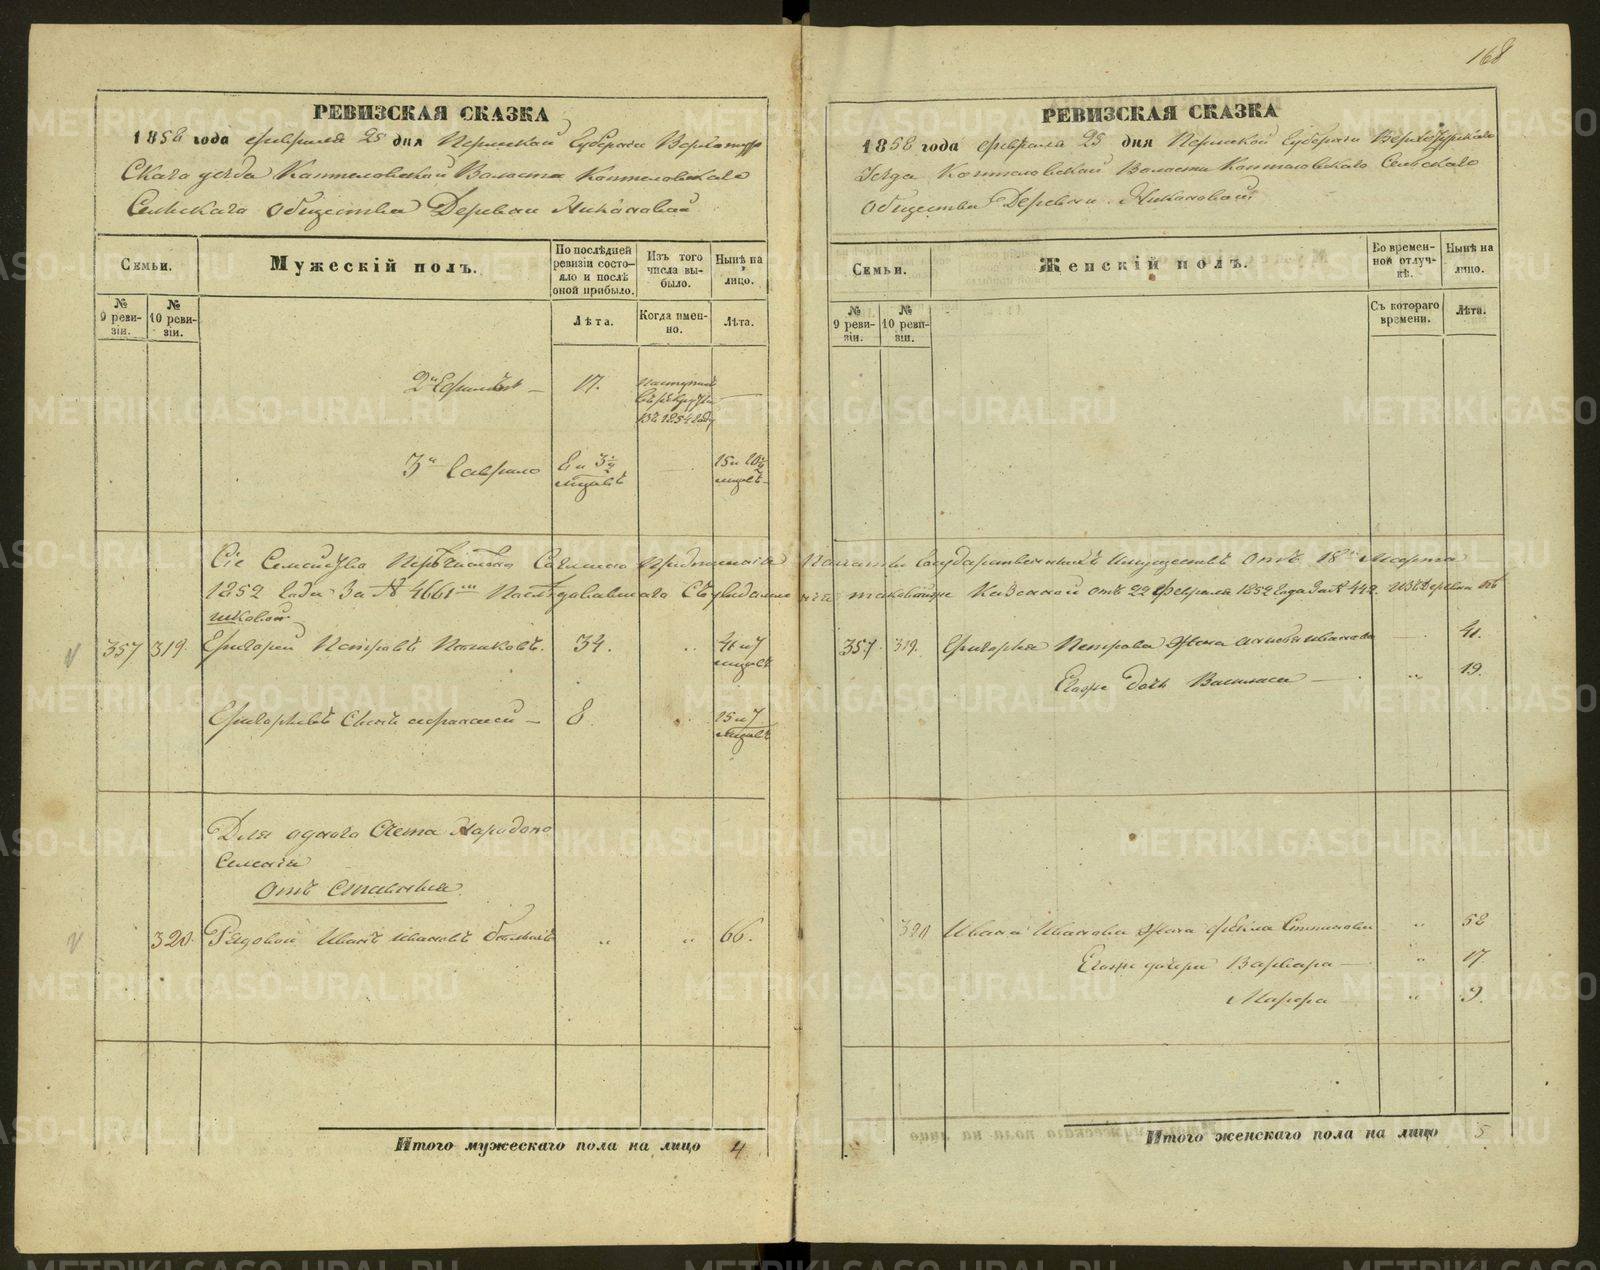 168
РЕВИЗСКАЯ СКАЗКА
1858 года февраля 25 дня Пермской Губернии Верхотур
скаго уезда Коптеловской Волости Коптеловскаго
Сельскаго общества Деревни Никоновой
Семьи.
Мужескій полъ.
По послѣдней ревизіи состояло и послѣ оной прибыло.
Изъ того числа выбыло.
Нынѣ на лицо.
№ 9 ревизіи.
№ 10 ревизіи.
Лѣта.
Когда именно.
Лѣта.
2й Ефимъ — 17. поступилъ въ рекруты въ 1854 году —
3й Гаврило 8 и 3½ мѣсяцъ — 15 и 10½ мѣсяцъ
Сіе Семейство Перечислено Согласно Предписанія Палаты Государственныхъ Имуществъ отъ 18го Марта
1852 года За № 4661 Последовавшаго отъ 22 февраля 1852 года За № 442 Изъ Деревни
357 319 Григорей Петровъ 34. " 41 и 7 мѣсяцъ
Григорьевъ Сынъ 8. " 15 и 7 мѣсяцъ
Для одного Счета Народона
селенія
Отъ
320. Рядовой Иванъ Ивановъ " " 66.
Итого мужескаго пола на лицо 4
РЕВИЗСКАЯ СКАЗКА
1858 года февраля 25 дня Пермской Губернии Верхотурскаго
Уезда Коптеловской Волости Коптеловскаго Сельскаго
общества Деревни Никоновой
Семьи.
Женскій полъ.
Во временной отлучкѣ.
Нынѣ на лицо.
№ 9 ревизіи.
№ 10 ревизіи.
Съ котораго времени.
Лѣта.
357 319. Григорья Петрова жена Иванова — 41.
Егоже Дочь Василиса — " 19.
320 Ивана Иванова жена Фекла Степанова " 52
Егоже дочери Варвара — " 17
Марфа " 9.
Итого женскаго пола на лицо 5
METRIKI.GASO-URAL.RU